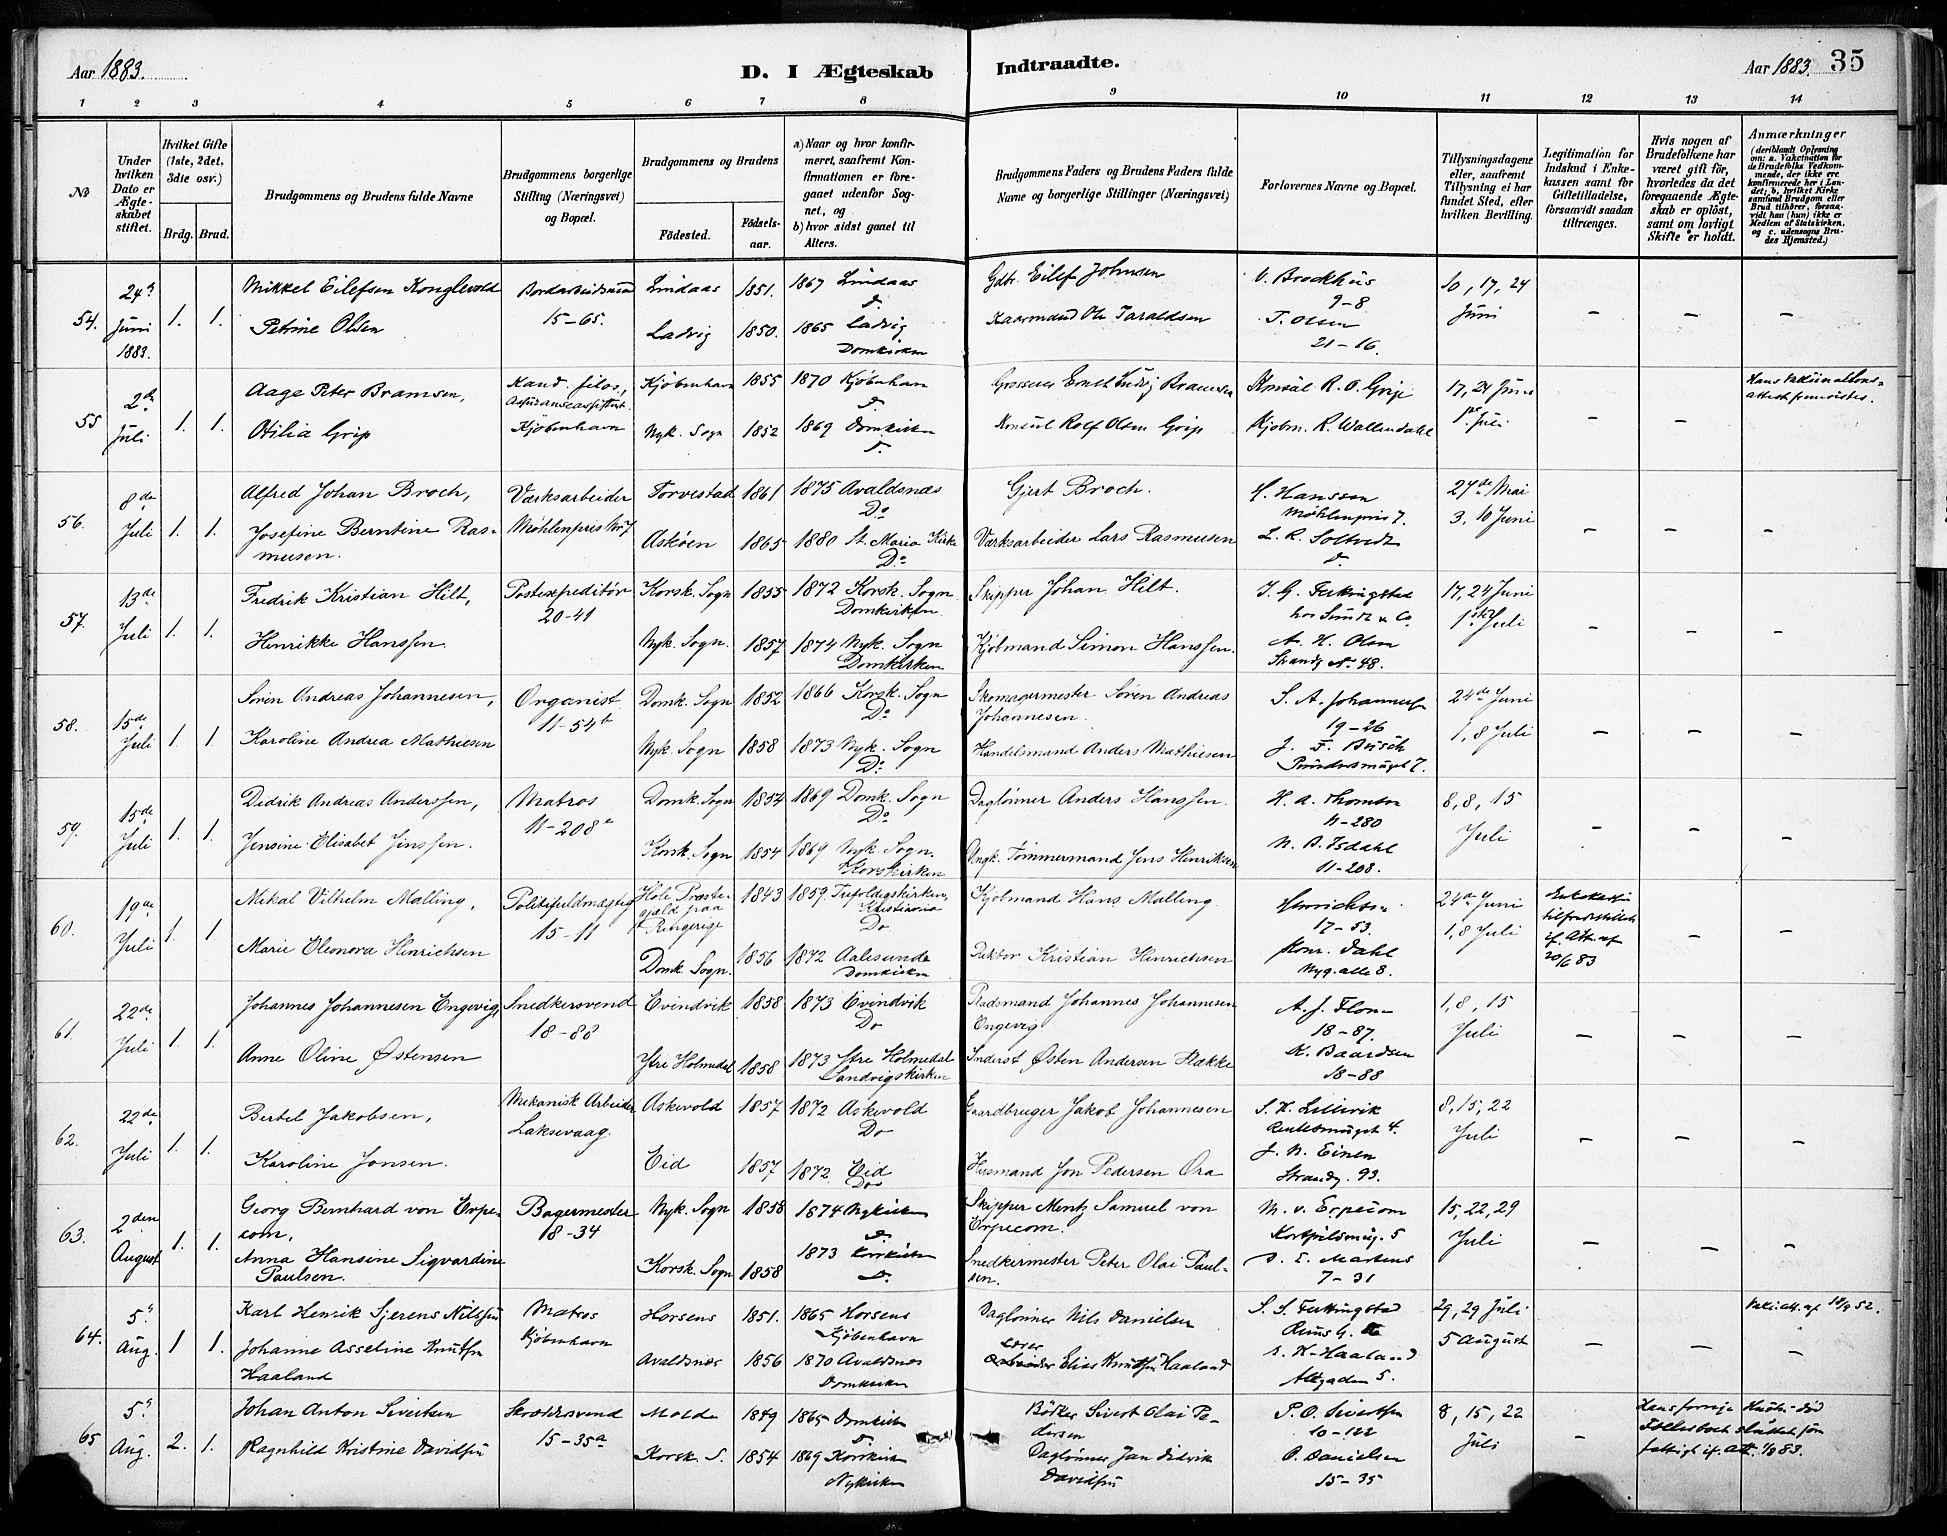 Aar 1883.
D. I Ægteskab Indtraadte.
Aar 1883. 35
1 2 3 4 5 6 7 8 9 10 11 12 13 14
No
Under hvilken Dato er Ægteskabet stiftet.
Hvilket Gifte (1ste, 2det, 3die osv.)
Brdg. Brud.
Brudgommens og Brudens fulde Navne
Brudgommens borgerlige Stilling (Næringsvei) og Bopæl.
Brudgommens og Brudens
Fødested. Fødselsaar.
a) Naar og hvor konfirmeret, saafremt Konfirmationen er foregaaet udenfor Sognet, og
b) hvor sidst gaaet til Alters.
Brudgommens Faders og Brudens Faders fulde Navne og borgerlige Stillinger (Næringsvei)
Forlovernes Navne og Bopæl.
Tillysningsdagene eller, saafremt Tillysning ei har fundet Sted, efter hvilken Bevilling.
Legitimation for Indskud i Enkekassen samt for Giftetilladelse, forsaavidt saadan tiltrænges.
Hvis nogen af Brudefolkene har været gift før, hvorledes da det foregaaende Ægteskab er opløst, samt om lovligt Skifte er holdt.
Anmærkninger (deriblandt Oplysning om: a. Vakcination for de Brudefolks Vedkommende, der ikke ere konfirmerede her i Landet; b. hvilket Kirkesamfund Brudgom eller Brud tilhører, forsaavidt han (hun) ikke er Medlem af Statskirken, og c. udensogns Brudes Hjemsted.)
54. 24' Juni 1883. 1. 1.
Mikkel Eilefsen Konglevold Lindaas 1851. 1867 Lindaas Gdbr. Eilef Johnsen V. Brockhus 9-8 10, 17, 24 Juni
Petrine Olsen 15-65. Ladvig 1850. 1865 Ladvig Domkirken Ole Taraldsen T. Olsen 21-16.
55 2den Juli 1. 1.
Aage Peter Bramsen, Kand. filos, Kjøbenhavn Kjøbenhavn 1855 1870 Kjøbenhavn Ernst Ludvig Bramsen Konsul R. O. Grip 17, 24 Juni 1ste Juli
Otilia Grip Nyk. Sogn 1852 1869 Domkirken Konsul Rolf Olsen Grip Kjøbm. R. Wallendahl
56. 8de Juli 1. 1.
Alfred Johan Broch, Værksarbeider Møhlenpris No 7 Torvestad 1861 1875 Avaldsnæs Do Gjert Broch. H. Hanssen Møhlenpris 7. 27de Mai 3, 10 Juni
Josefine Berntine Rasmusen. Askøen 1865 1880 St. Maria Kirke Do Værksarbeider Lars Rasmusen L. R. Soltvedt
57. 13de Juli 1. 1.
Fredrik Kristian Hilt, Postexpeditør 20-41 Korsk. Sogn 1855 1872 Korsk. Sogn Domkirken Skipper Johan Hilt. J. G. Ferkingstad hos Sundt & Co. 17, 24 Juni 1ste Juli
Henrikke Hanssen. Nyk. Sogn. 1857 1874 Nyk. Sogn Domkirken Kjøbmand Simon Hanssen. A. H. Olsen Strandg. No. 48.
58. 15de Juli 1. 1.
Søren Andreas Johannesen, Organist 11-54b Domk. Sogn 1852 1866 Korsk. Sogn Do Skomagermester Søren Andreas Johannesen. S. A. Johannesen 19-26 24de Juni 1, 8 Juli
Karoline Andrea Mathiesen Nyk. Sogn 1858 1873 Nyk. Sogn Do Handelsmand Anders Mathiesen J. F. Busch 7.
59. 15de Juli 1. 1.
Didrik Andreas Anderssen, Matros 11-208a Domk. Sogn 1854 1869 Domk. Sogn Do Daglønner Anders Hanssen. H. A. Thomsen 11-280 8, 8, 15 Juli
Jensine Elisabet Jenssen. Korsk. Sogn 1854 1869 Nyk. Sogn. Korskirken Ungk. Tømmermand Jens Henriksen N. B. Isdahl 11-208.
60. 19de Juli 1. 1.
Mikal Vilhelm Malling, Politifuldmægtig 15-11 Hole Præstegjæld paa Ringerige 1843 1859. Trefoldigskirken, Kristiania Do Kjøbmand Hans Malling. Henrichsen 17-53. 24de Juni 1, 8 Juli Enkekassen tilfredsstillet if. Att. af 20/6 83
Marie Eleonora Henrichsen Domk. Sogn. 1856 1872 Aalesund Domkirken Kristian Henrichsen Konr. Dahl Nyg. alle 8.
61. 22de Juli 1. 1.
Johannes Johannesen Engevig, Snedkersvend 18-88 Evindvik 1858 1873 Evindvik Do Pladsmand Johannes Johannesen Engevig A. J. Flom 18-87. 1, 8, 15 Juli
Anne Oline Østensen Ytre Holmedal 1858 1873 Ytre Holmedal Sandvigskirken Inderst Østen Andersen Flække K. Baardsen 18-88
62. 22de Juli 1. 1.
Bertel Jakobsen, Mekanisk Arbeider Laksevaag. Askevold 1857 1872 Askevold Do Gaardbruger Jakob Johannesen S. K. Lillevik 4. 8, 15, 22 Juli
Karoline Jonsen. Eid 1857 1872 Eid Do Husmand Jon Pedersen Ora J. N. Einen Strandg. 93.
63. 2den August 1. 1.
Georg Bernhard von Erpecom, Bagermester 18-34 Nyk. Sogn 1858 1874 Nykirken Do Skipper Mentz Samuel von Erpecom. M. v. Erpecom 5 15, 22, 29 Juli
Anna Hansine Sigvardine Paulsen. Korsk. Sogn 1858 1873 Korskirken Do Snedkermester Peter Olai Paulsen. E. Martens 7-31
64. 5' Aug. 1 1.
Karl Henrik Sjerens Nilssen Matros Kjøbenhavn Horsens 1851. 1865 Horsens Kjøbenhavn Daglønner Nils Danielsen S. S. Ferkingstad 29, 29 Juli 5 August
Johanne Asseline Knutsen Haaland Avaldsnæs 1856 1870 Avaldsnæs Domkirken Elias Knutsen Haaland K. Haaland 5.
65 5' Aug. 2. 1.
Johan Anton Sivertsen Skræddersvend 15-35a Molde 1849 1865 Domkirken Do Bødker Sivert Olai Pedersen P. O. Sivertsen 10-122 8, 15, 22 Juli
Ragnhild Kristine Davidsen Korsk. S. 1854 1869 Korskirken Nykirken Daglønner Jan Didrik Davidsen O. Danielsen 15-35